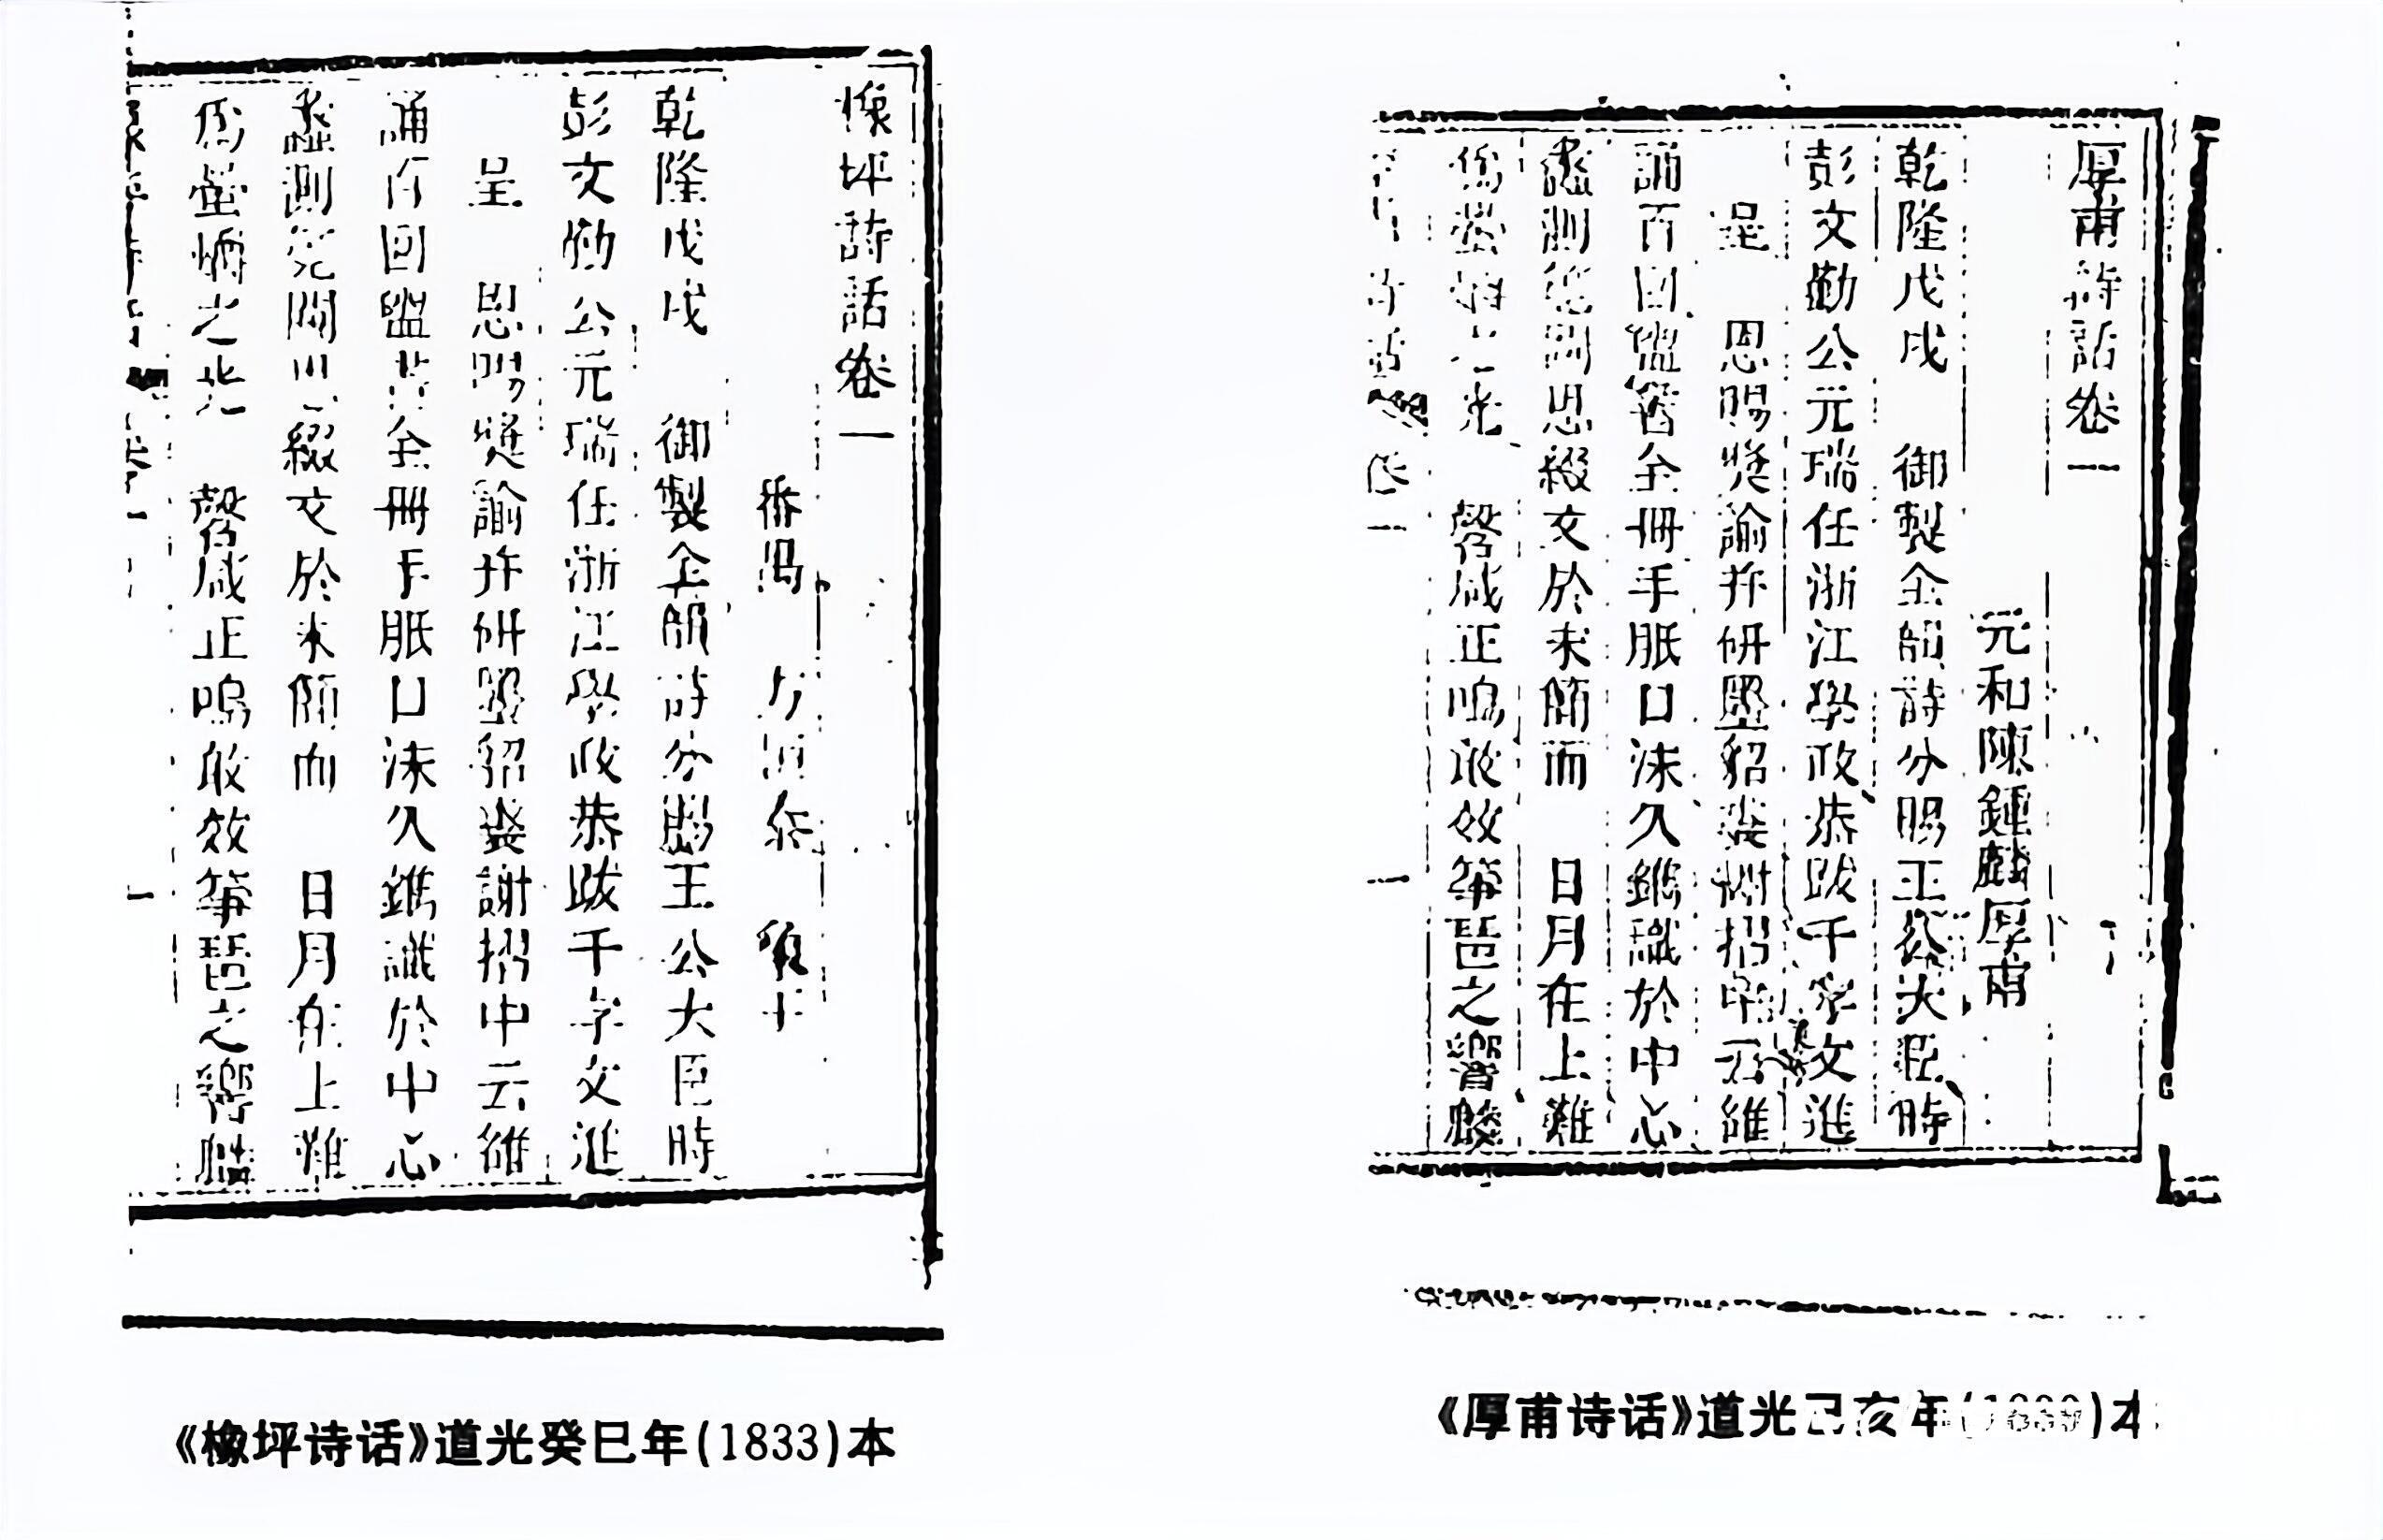 橡坪詩話卷一
番禺 方恒泰 
乾隆戊戌 御製全韻詩分賜王公大臣時
彭文勤公元瑞任浙江學政恭跋千字文進
呈 恩賜獎諭并研墨貂裘謝摺中云維
誦百回盥薔全冊手胝口沫久鐫識於中心
蠡測管闚思綴文於末簡而 日月在上難
為螢爝之光 磬咸正鳴敢效箏琶之響
一
《橡坪诗话》道光癸巳年(1833)本
厚甫詩話卷一
元和陳鍾麟厚甫
乾隆戊戌 御製全韻詩分賜王公大臣時
彭文勤公元瑞任浙江學政恭跋千字文進
呈 恩賜獎諭并研墨貂裘謝摺中云維
誦百回全冊手胝口沫久鐫識於中心
蠡測思綴文於末簡而 日月在上難
為螢之光 磬咸正鳴敢效箏琶之響
一
《厚甫诗话》道光己亥年本